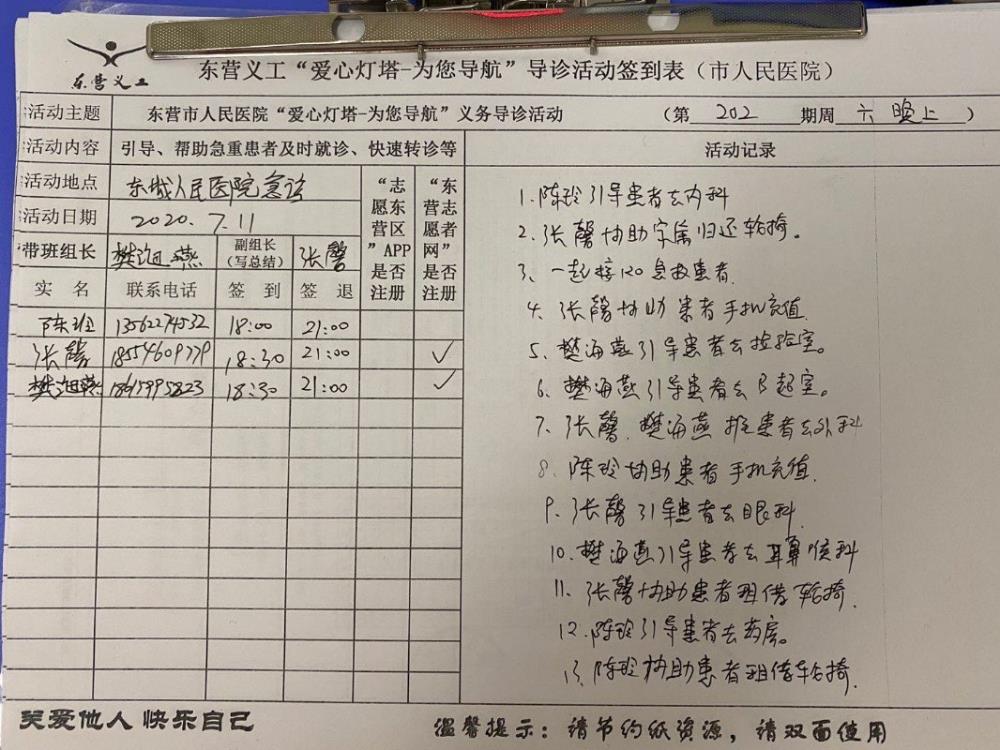 东营义工
东营义工“爱心灯塔-为您导航”导诊活动签到表（市人民医院）
活动主题 东营市人民医院“爱心灯塔-为您导航”义务导诊活动 （第 202 期周 六 晚上 ）
活动内容 引导、帮助急重患者及时就诊、快速转诊等 活动记录
活动地点 东城人民医院急诊
活动日期 2020.7.11
“志愿东营区”APP是否注册
“东营志愿者网”是否注册
带班组长 樊海燕 副组长（写总结） 张馨
实 名 联系电话 签 到 签 退
陈玲 13562274532 18:00 21:00
张馨 18554609779 18:30 21:00 ✓
樊海燕 18615995823 18:30 21:00 ✓
1.陈玲引导患者去内科
2.张馨协助家属归还轮椅。
3、一起接120急救患者.
4.张馨协助患者手机充值.
5.樊海燕引导患者去检验室。
6.樊海燕引导患者去B超室。
7.张馨.樊海燕推患者去外科
8.陈玲协助患者手机充值.
9.张馨引导患者去眼科.
10.樊海燕引导患者去耳鼻喉科
11.张馨协助患者租借轮椅.
12.陈玲引导患者去药房。
13.陈玲协助患者租借轮椅.
关爱他人 快乐自己
温馨提示：请节约纸资源，请双面使用